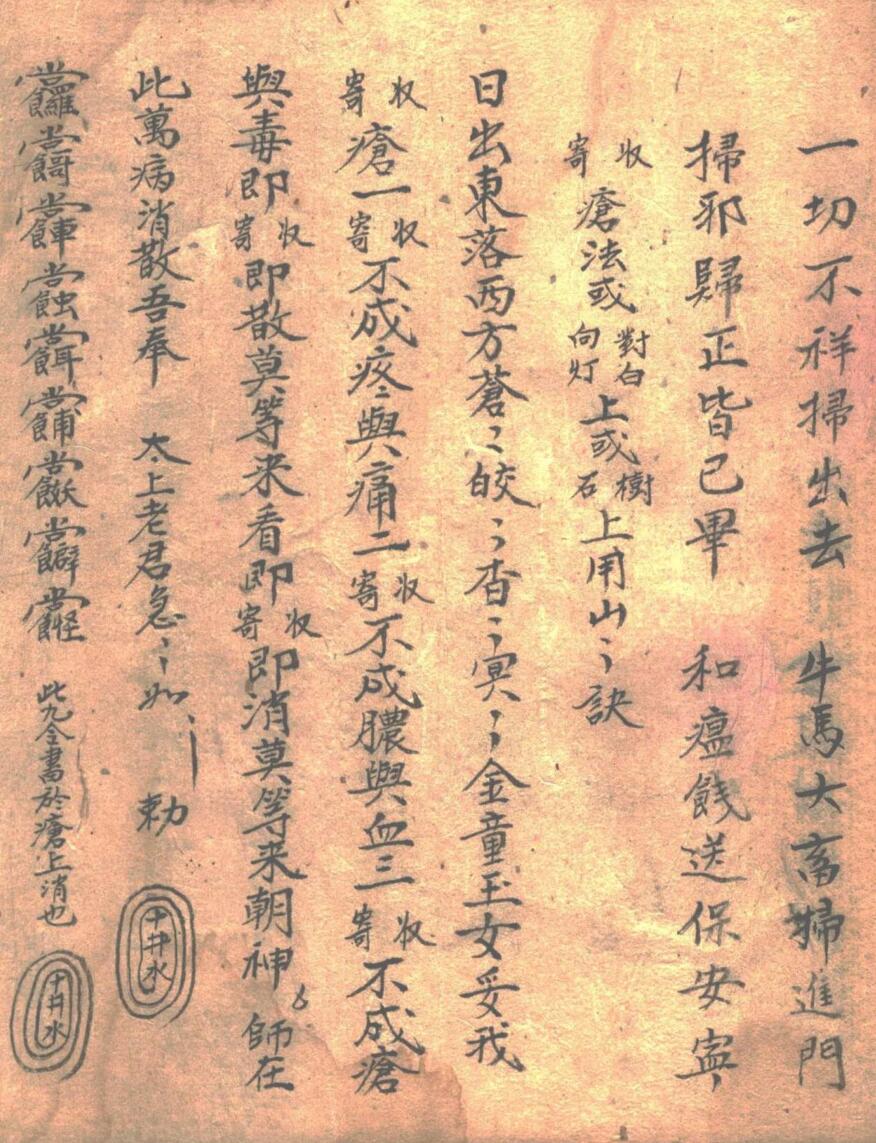 一切不祥掃出去　牛馬大畜掃進門
掃邪歸正皆已畢　和瘟餞送保安寧
收寄瘡法或對白向灯上或樹石上用山〻訣
日出東落西方蒼〻皎〻杳〻冥〻金童玉女妥我
收寄瘡一收寄不成疼與痛二收寄不成膿與血三收寄不成瘡
與毒即收寄即散莫等来看即收寄即消莫等来朝神〻師在
此萬病消散吾奉　太上老君急〻如〻　勅　十井水
此九令書於瘡上消也　十井水